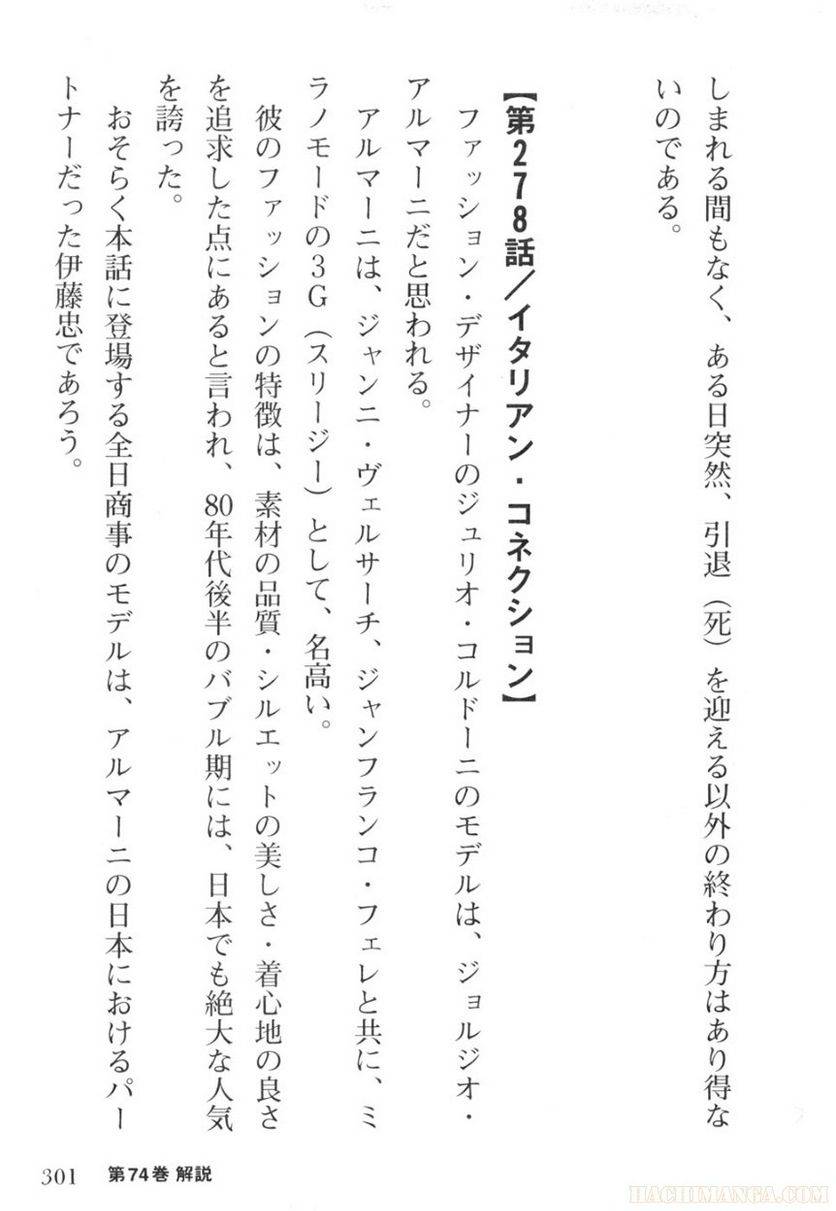 しまれる間もなく、ある日突然、引退（死）を迎える以外の終わり方はあり得な
いのである。
【第278話／イタリアン・コネクション】
ファッション・デザイナーのジュリオ・コルドーニのモデルは、ジョルジオ・
アルマーニだと思われる。
アルマーニは、ジャンニ・ヴェルサーチ、ジャンフランコ・フェレと共に、ミ
ラノモードの3G（スリージー）として、名高い。
彼のファッションの特徴は、素材の品質・シルエットの美しさ・着心地の良さ
を追求した点にあると言われ、80年代後半のバブル期には、日本でも絶大な人気
を誇った。
おそらく本話に登場する全日商事のモデルは、アルマーニの日本におけるパー
トナーだった伊藤忠であろう。
301 第74巻 解説
HACHIMANGA.COM